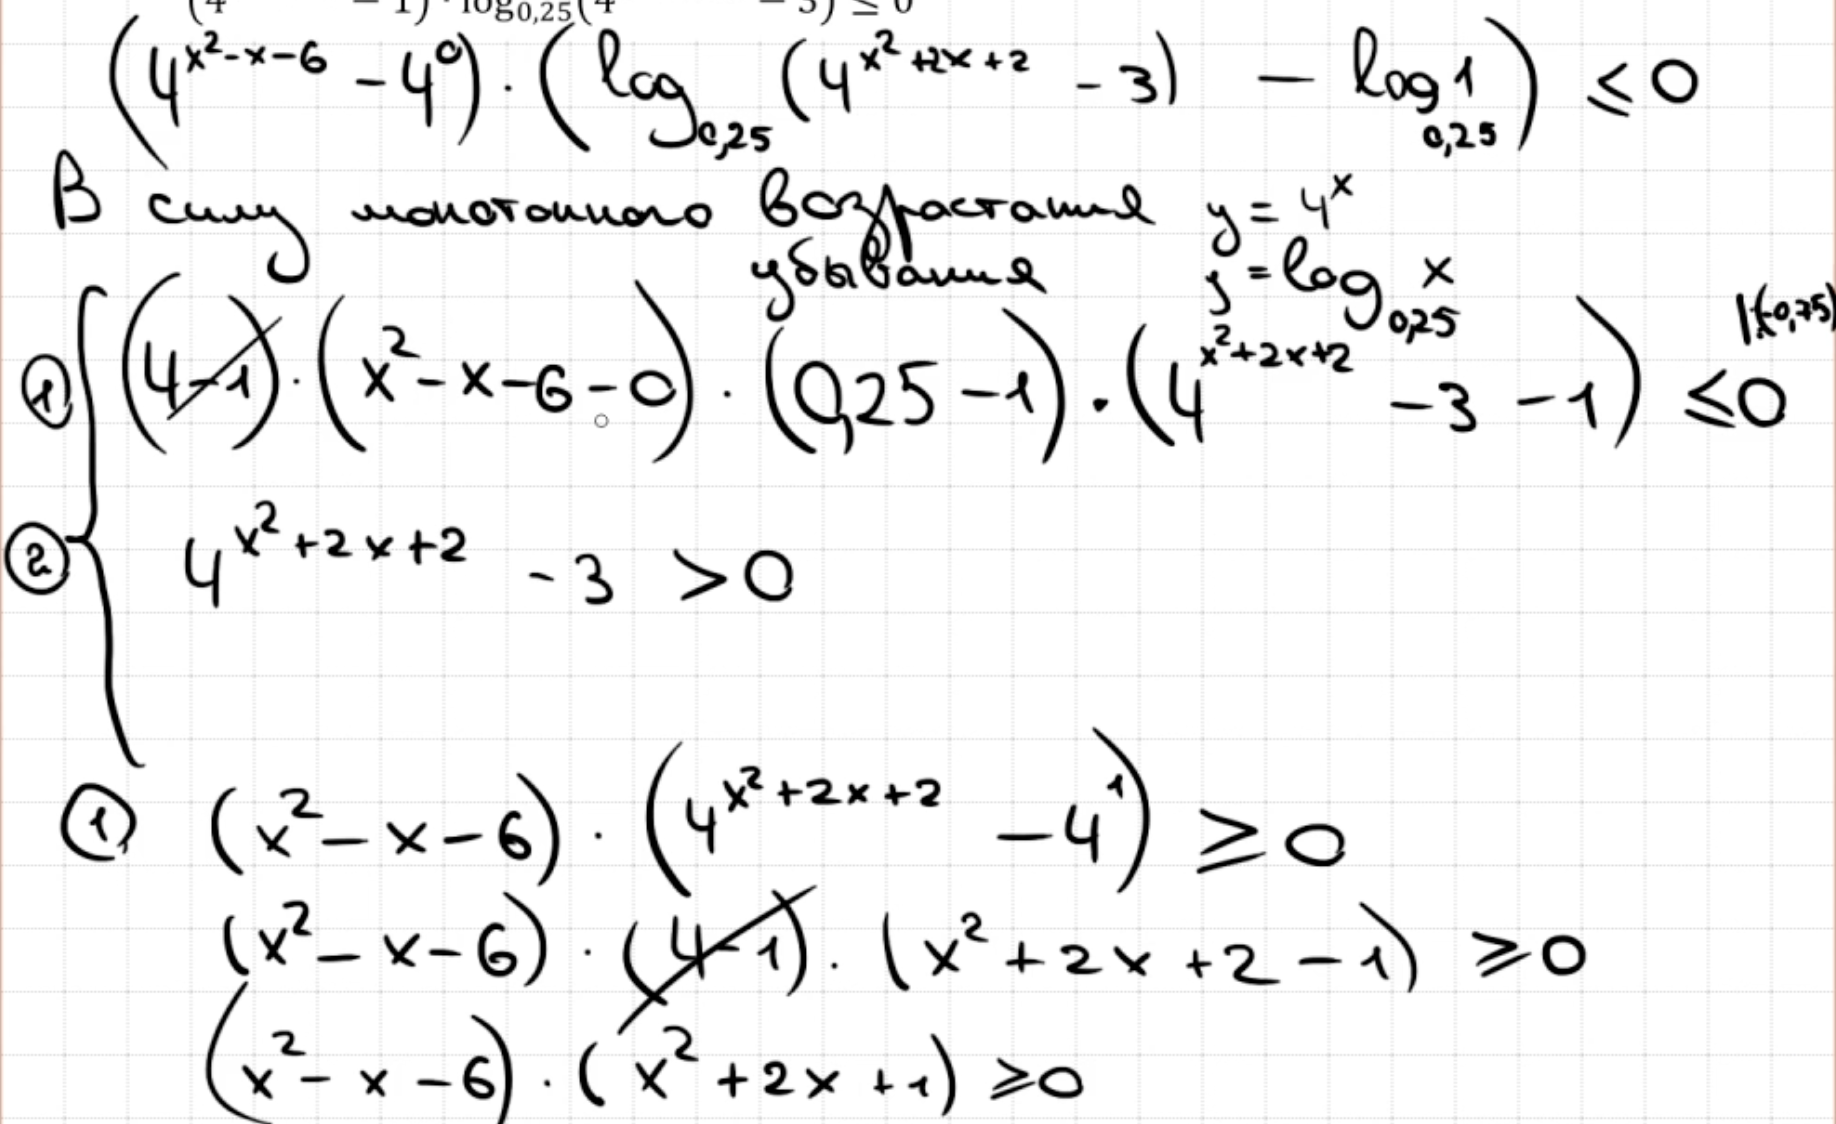 (4 − 1) · log₀,₂₅(4 − 3) ≤ 0
(4^(x²-x-6) - 4⁰) · (log₀,₂₅ (4^(x²+2x+2) - 3) - log₀,₂₅ 1) ≤ 0
В силу монотонного возрастания y = 4ˣ
убывания y = log₀,₂₅ x
① (4-1) · (x²-x-6-0) · (0,25-1) · (4^(x²+2x+2) -3 -1) ≤0 |:(-0,75)
② 4^(x²+2x+2) - 3 >0
① (x²-x-6) · (4^(x²+2x+2) - 4¹) ≥ 0
(x²-x-6) · (4-1) · (x²+2x+2-1) ≥0
(x²-x-6) · (x²+2x+1) ≥0